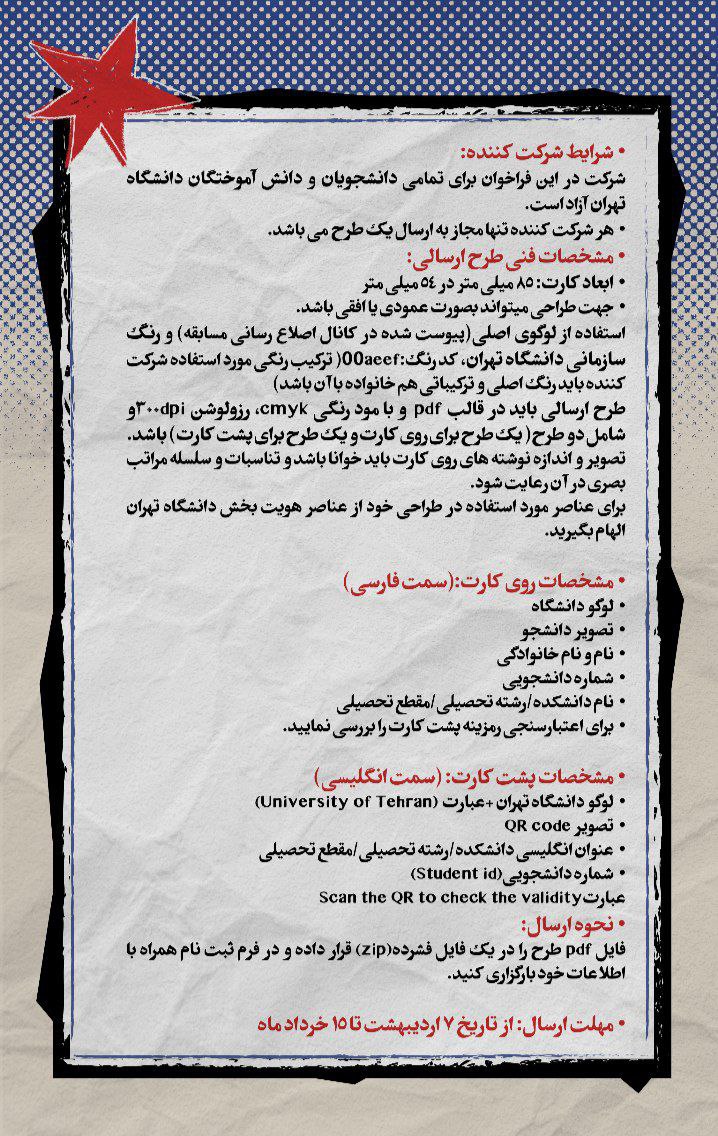 • شرایط شرکت کننده:
شرکت در این فراخوان برای تمامی دانشجویان و دانش آموختگان دانشگاه
تهران آزاد است.
• هر شرکت کننده تنها مجاز به ارسال یک طرح می باشد.
• مشخصات فنی طرح ارسالی:
• ابعاد کارت: ۸۵ میلی متر در ۵۴ میلی متر
• جهت طراحی میتواند بصورت عمودی یا افقی باشد.
استفاده از لوگوی اصلی(پیوست شده در کانال اصلاع رسانی مسابقه) و رنگ
سازمانی دانشگاه تهران، کد رنگ:00aeef( ترکیب رنگی مورد استفاده شرکت
کننده باید رنگ اصلی و ترکیباتی هم خانواده با آن باشد)
طرح ارسالی باید در قالب pdf و با مود رنگی cmyk، رزولوشن ۳۰۰dpi و
شامل دو طرح( یک طرح برای روی کارت و یک طرح برای پشت کارت) باشد.
تصویر و اندازه نوشته های روی کارت باید خوانا باشد و تناسبات و سلسله مراتب
بصری در آن رعایت شود.
برای عناصر مورد استفاده در طراحی خود از عناصر هویت بخش دانشگاه تهران
الهام بگیرید.
• مشخصات روی کارت:(سمت فارسی)
• لوگو دانشگاه
• تصویر دانشجو
• نام و نام خانوادگی
• شماره دانشجویی
• نام دانشکده/رشته تحصیلی/مقطع تحصیلی
• برای اعتبارسنجی رمزینه پشت کارت را بررسی نمایید.
• مشخصات پشت کارت: (سمت انگلیسی)
• لوگو دانشگاه تهران +عبارت (University of Tehran)
• تصویر QR code
• عنوان انگلیسی دانشکده/رشته تحصیلی/مقطع تحصیلی
• شماره دانشجویی(Student id)
عبارت Scan the QR to check the validity
• نحوه ارسال:
فایل pdf طرح را در یک فایل فشرده(zip) قرار داده و در فرم ثبت نام همراه با
اطلاعات خود بارگزاری کنید.
• مهلت ارسال: از تاریخ ۷ اردیبهشت تا ۱۵ خرداد ماه